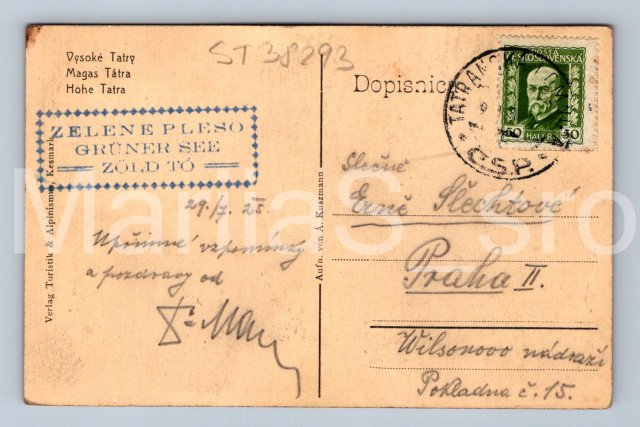 Vysoké Tatry
Magas Tátra
Hohe Tatra
ST38293
Dopisnice
POŠTA
ČESKOSLOVENSKÁ
50 HALÉŘŮ 50
TATRANSKÁ
Č.S.P.
ZELENE PLESO
GRÜNER SEE
ZÖLD TÓ
Verlag Turistik & Alpinismus, Kesmark.
Aufn. von A. Kuszmann
29./7. 25.
Upřímné vzpomínky
a pozdravy od
Slečně
Erně Šlechtové
Praha II.
Wilsonovo nádraží
Pokladna č. 15.
ManiaS sro